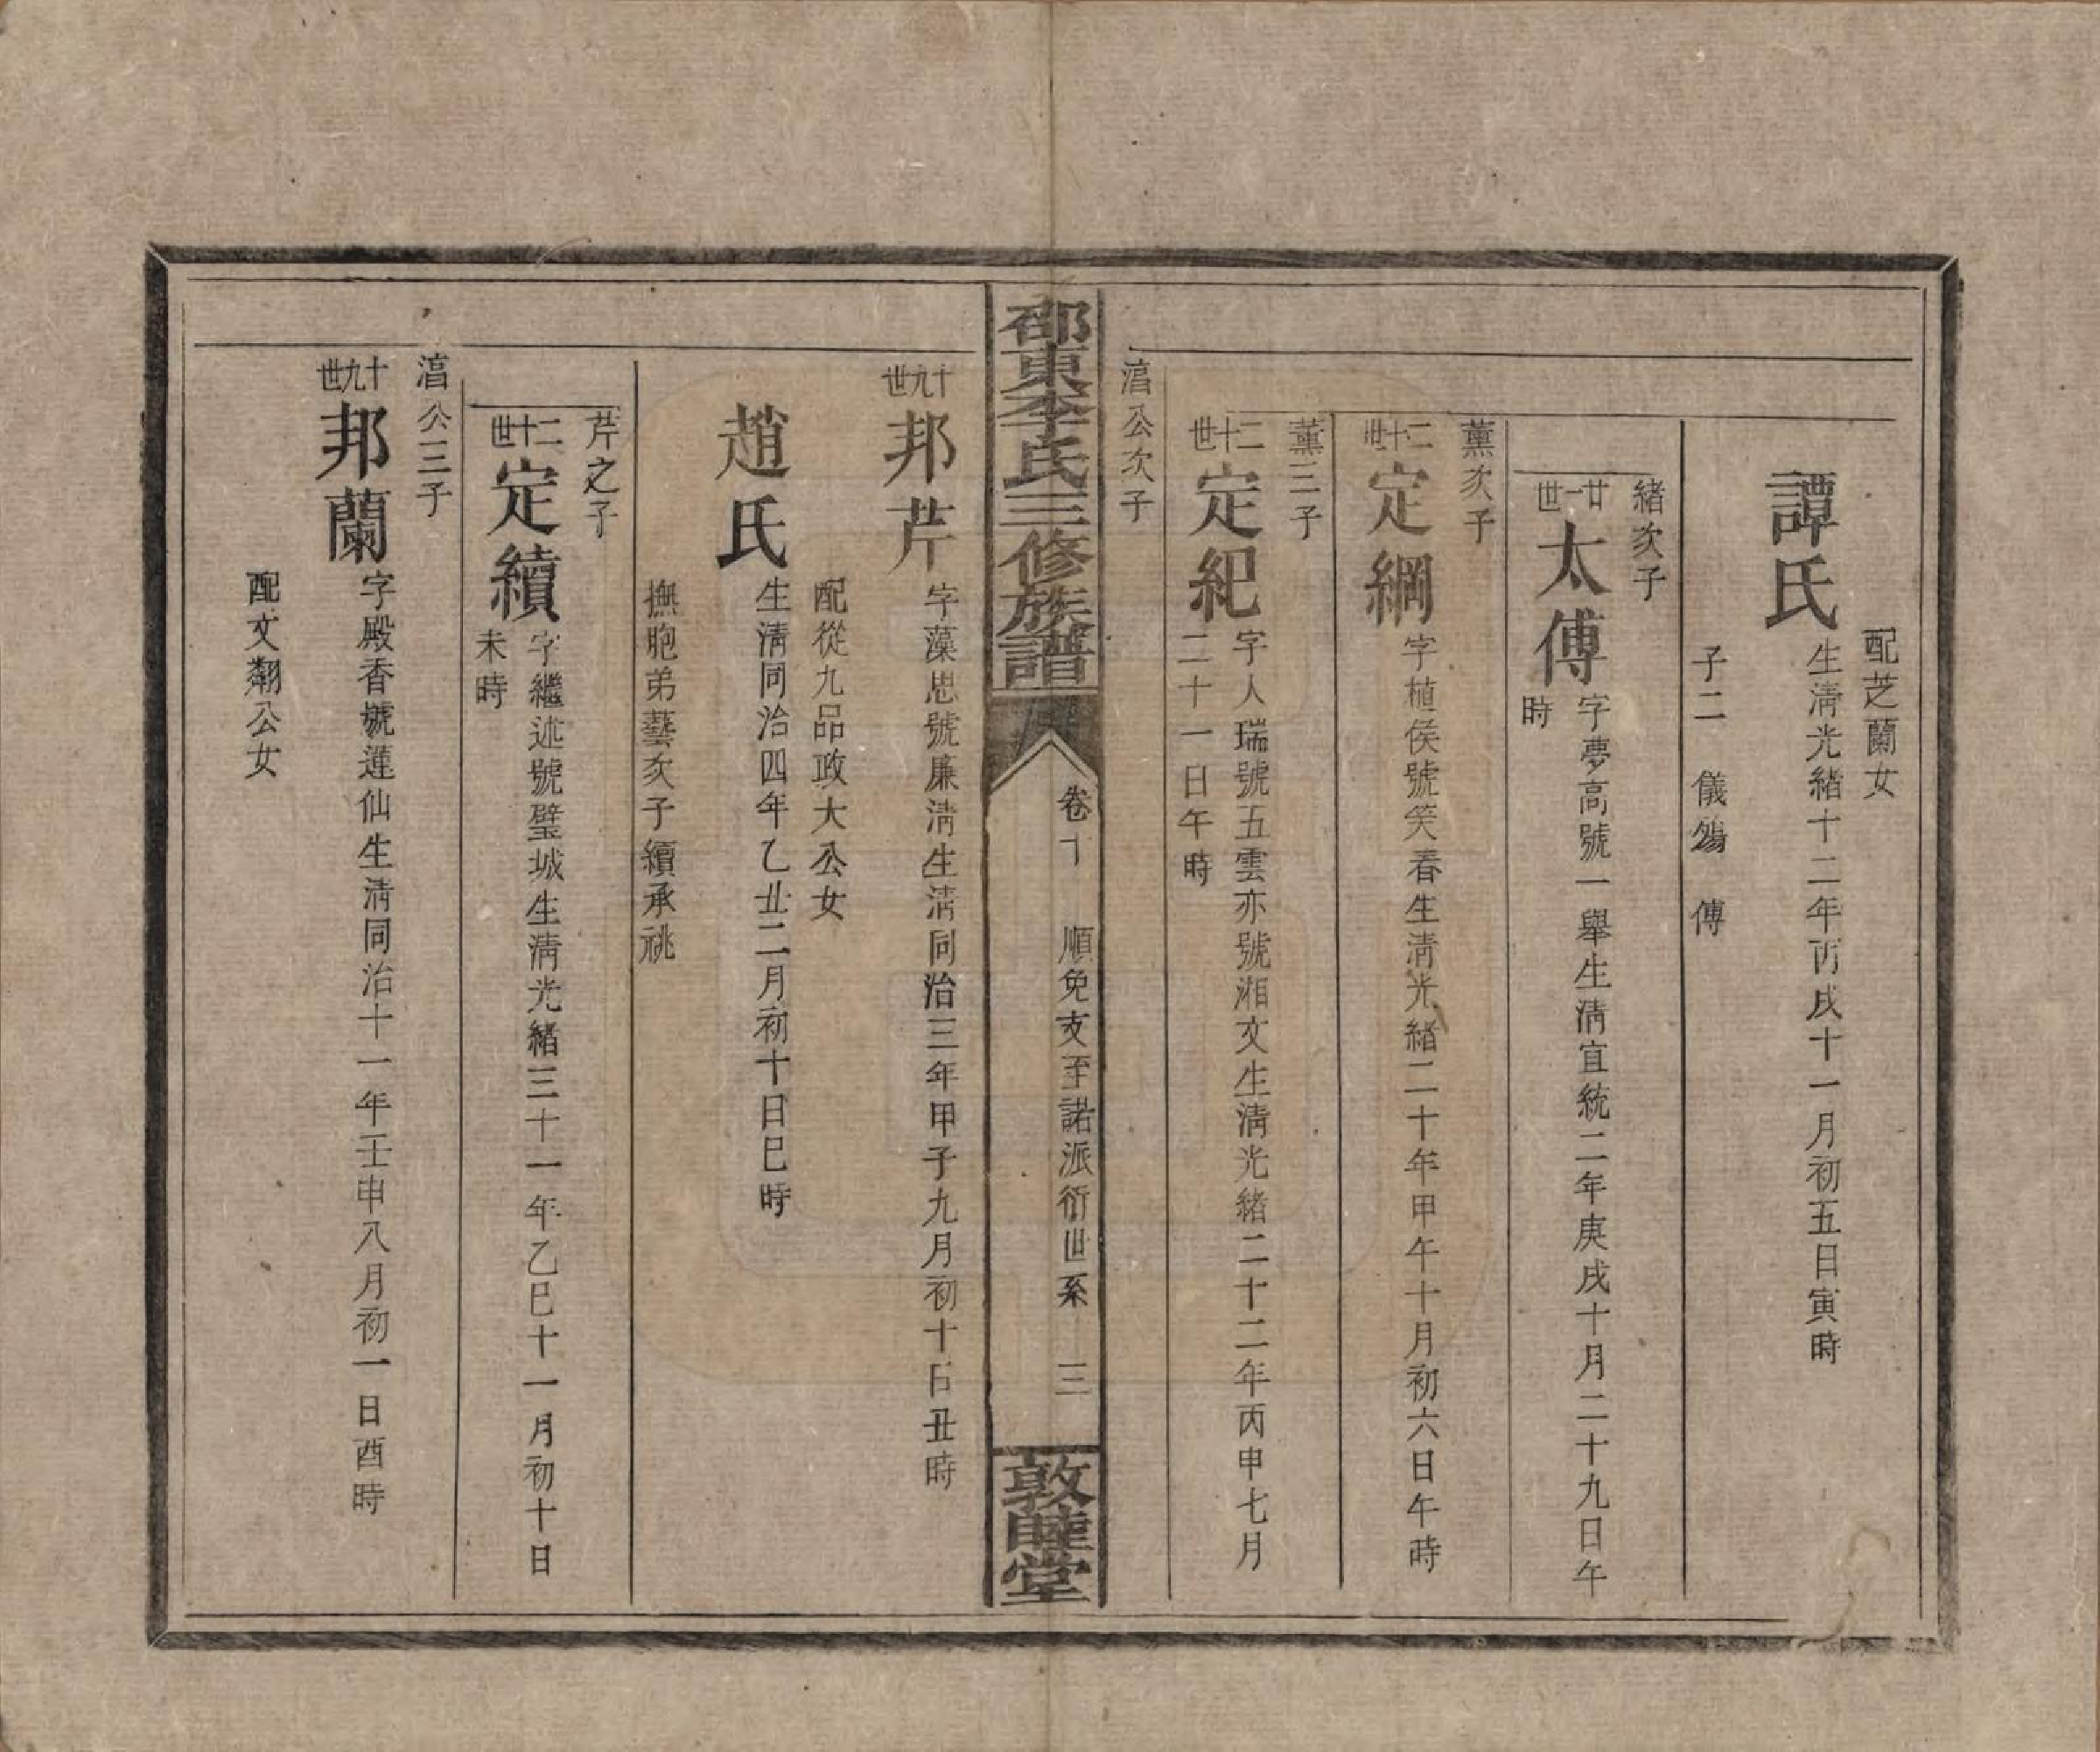 配芝蘭女
譚氏
生清光緒十二年丙戌十一月初五日寅時
子二　儀殤　傅
緒次子
廿一世
太傅
字夢高號一舉生清宣統二年庚戌十月二十九日午
時
薰次子
二十世
定綱
字植侯號笑春生清光緒二十年甲午十月初六日午時
薰三子
二十世
定紀
字人瑞號五雲亦號湘文生清光緒二十二年丙申七月
二十一日午時
湻公次子
邵東李氏三修族譜
卷十　順免支至諾派衍世系　三
敦睦堂
十九世
邦芹
字藻思號廉清生清同治三年甲子九月初十日丑時
配從九品政大公女
趙氏
生清同治四年乙丑二月初十日巳時
撫胞弟藝次子續承祧
芹之子
二十世
定續
字繼述號璧城生清光緒三十一年乙巳十一月初十日
未時
湻公三子
十九世
邦蘭
字殿香號蓮仙生清同治十一年壬申八月初一日酉時
配文翔公女